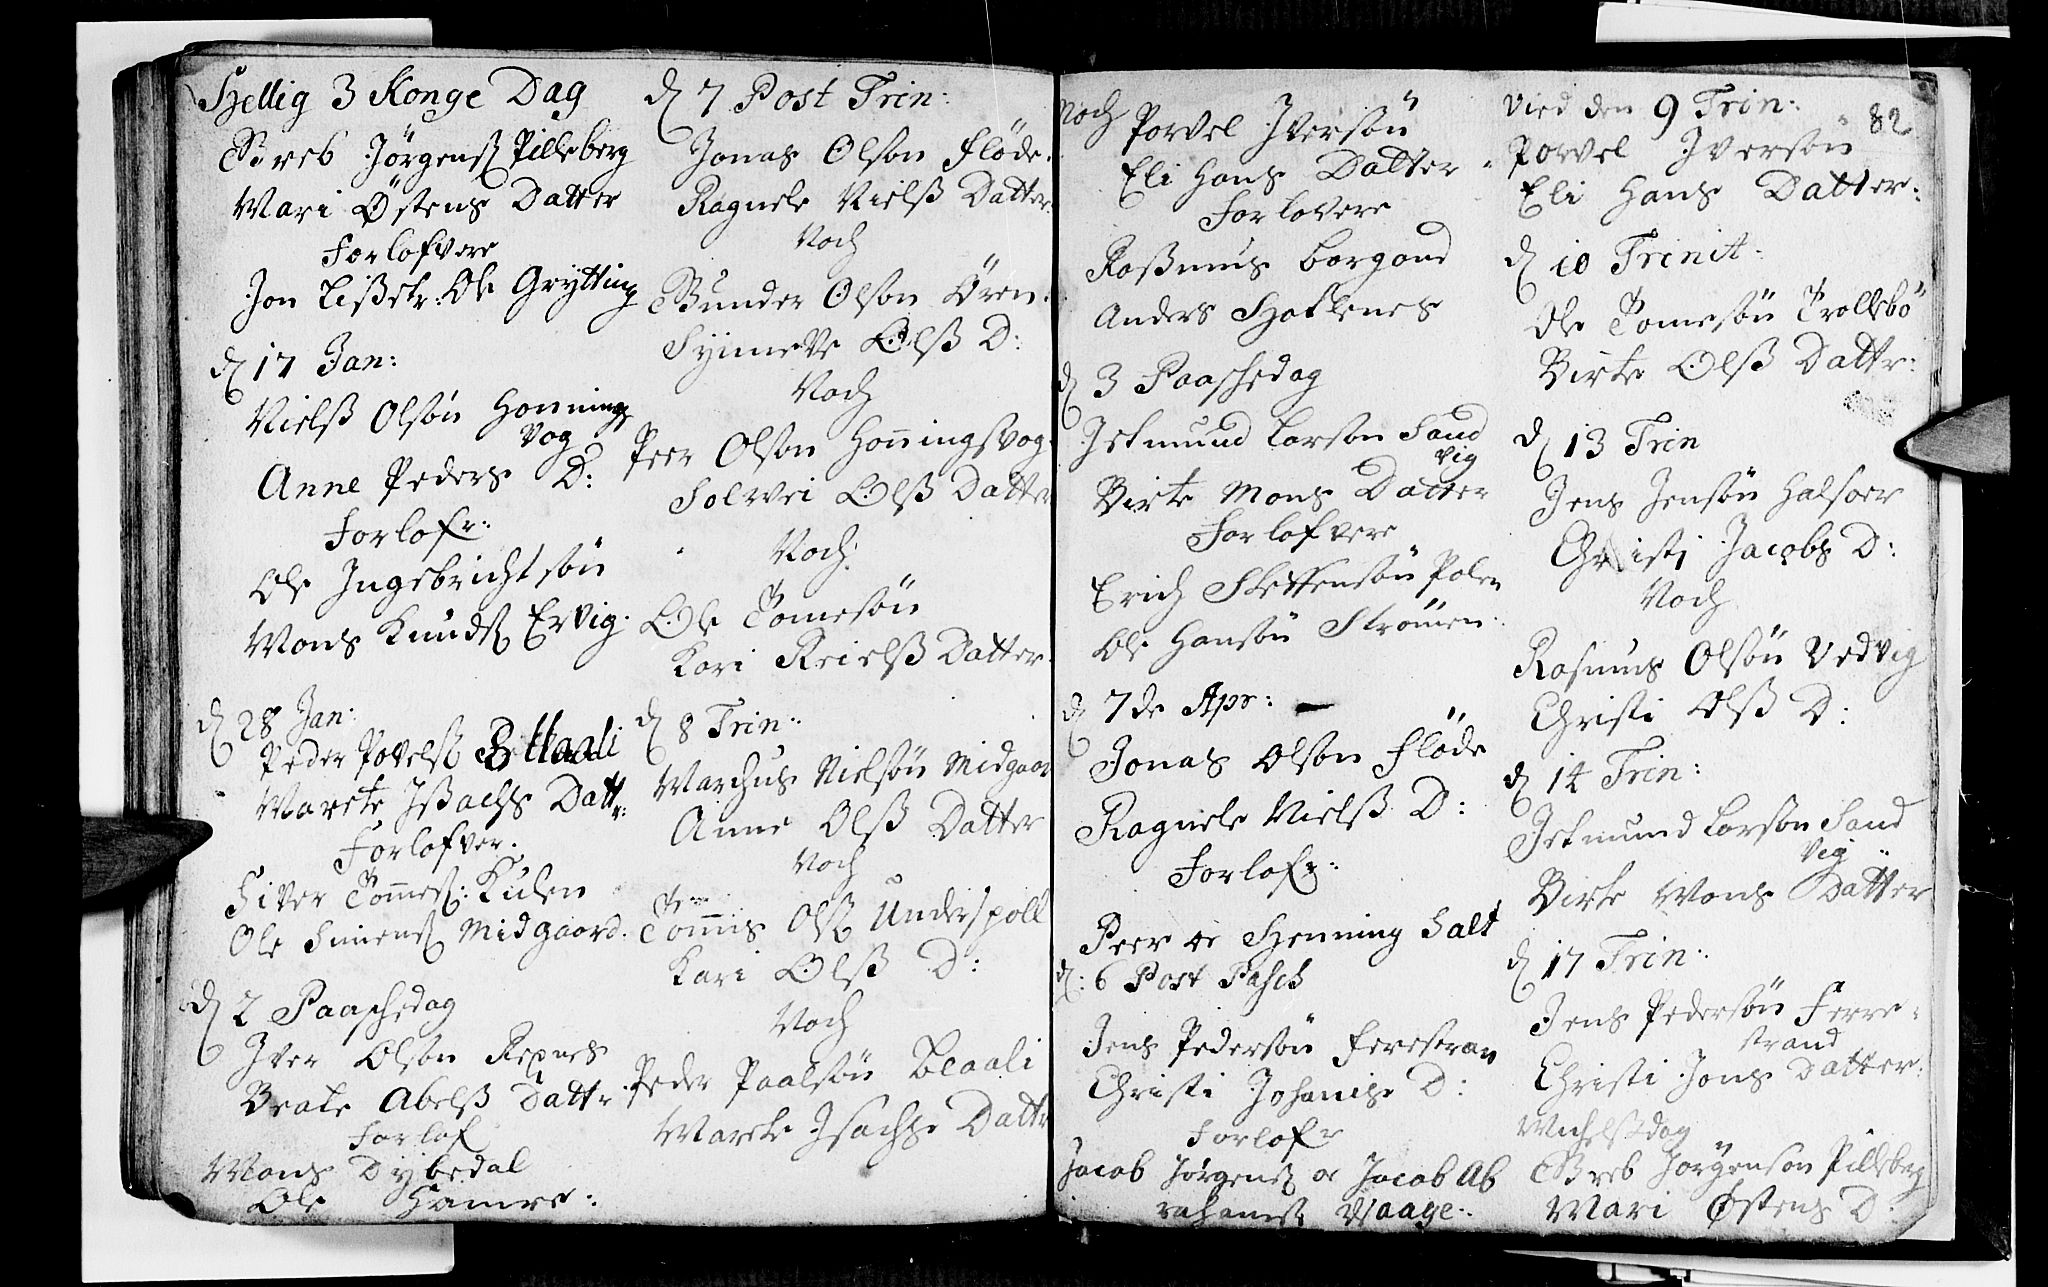 Hellig 3 Konge Dag
Breb Jörgens Pilleberg
Mari Østens Datter
Forlofvere
Jon Lisetr: Ole Grytting
d 17 Jan:
Nielß Olsön Honnings
vog
Anne Peders D:
Forlofr:
Ole Ingebrichtsön
Mons Knuds Ervig.
d 28 Jan:
Peder Povelß
Marete Isachs Datt
r:
Forlofver.
Siver Tommeß: Kulen
Ole Simens Midgaard.
d 2 Paaschedag
Iver Olson Refnes
Beate Abelß Dattr.
Forlof
Mons Dybedal
Ole Hamre:
d 7 Post Trin:
Jonas Olson Flöde.
Ragnele Nielß Datter.
Noch
Gunder Olson Ören.
Symeve Olß D:
Noch
Peer Olson Honningsvog.
Solvei Olß Datter
Noch:
Ole Tomesön
Kari Reielß Datter.
d 8 Trin:
Marchus Nielsön Midgaar
Anne Olß Datter
Noch
Tommis Olß Underspoll
Kari Olß D:
Noch
Peder Paalsön Blaali
Marete Isachs Dattr
Noch Porvel Iversön
Eli Hans Datter
Forlovere
Raßmus Borgond
Anders Hoflenes
d 3 Paaschedag
Jetmund Larson Sand
vig
Birte Mons Datter
Forlofvere
Erich Steffensön Polen
Ole Hansön Strömen.
d 7de Apr:
Jonas Olson Flöde
Ragnele Nielß D:
Forlofr:
Peer oc Henning Salt
d: 6 Post Pasch
Jens Pedersön Ferestran
Christi Johanis D:
Forlofr
Jacob Jörgens oc Jacob Ab
rahams Waage.
82
Vied den 9 Trin:
Porvel Iversön
Eli Hans Datter:
d 10 Trinit:
Ole Tomesön Trollebö
Birte Olß Dattr:
d 13 Trin
Jens Jensön Halsoer
Christi Jacobs D:
Noch
Rasmus Olsön Vedvig
Christi Olß D:
d 14 Trin:
Jetmund Larsön Sand
vig
Birte Mons Datter
d 17 Trin:
Jens Pedersön Ferre-
strand
Christi Jons Datter.
Michelsdag
Breb Jörgenson Pilleberg
Mari Østens D: